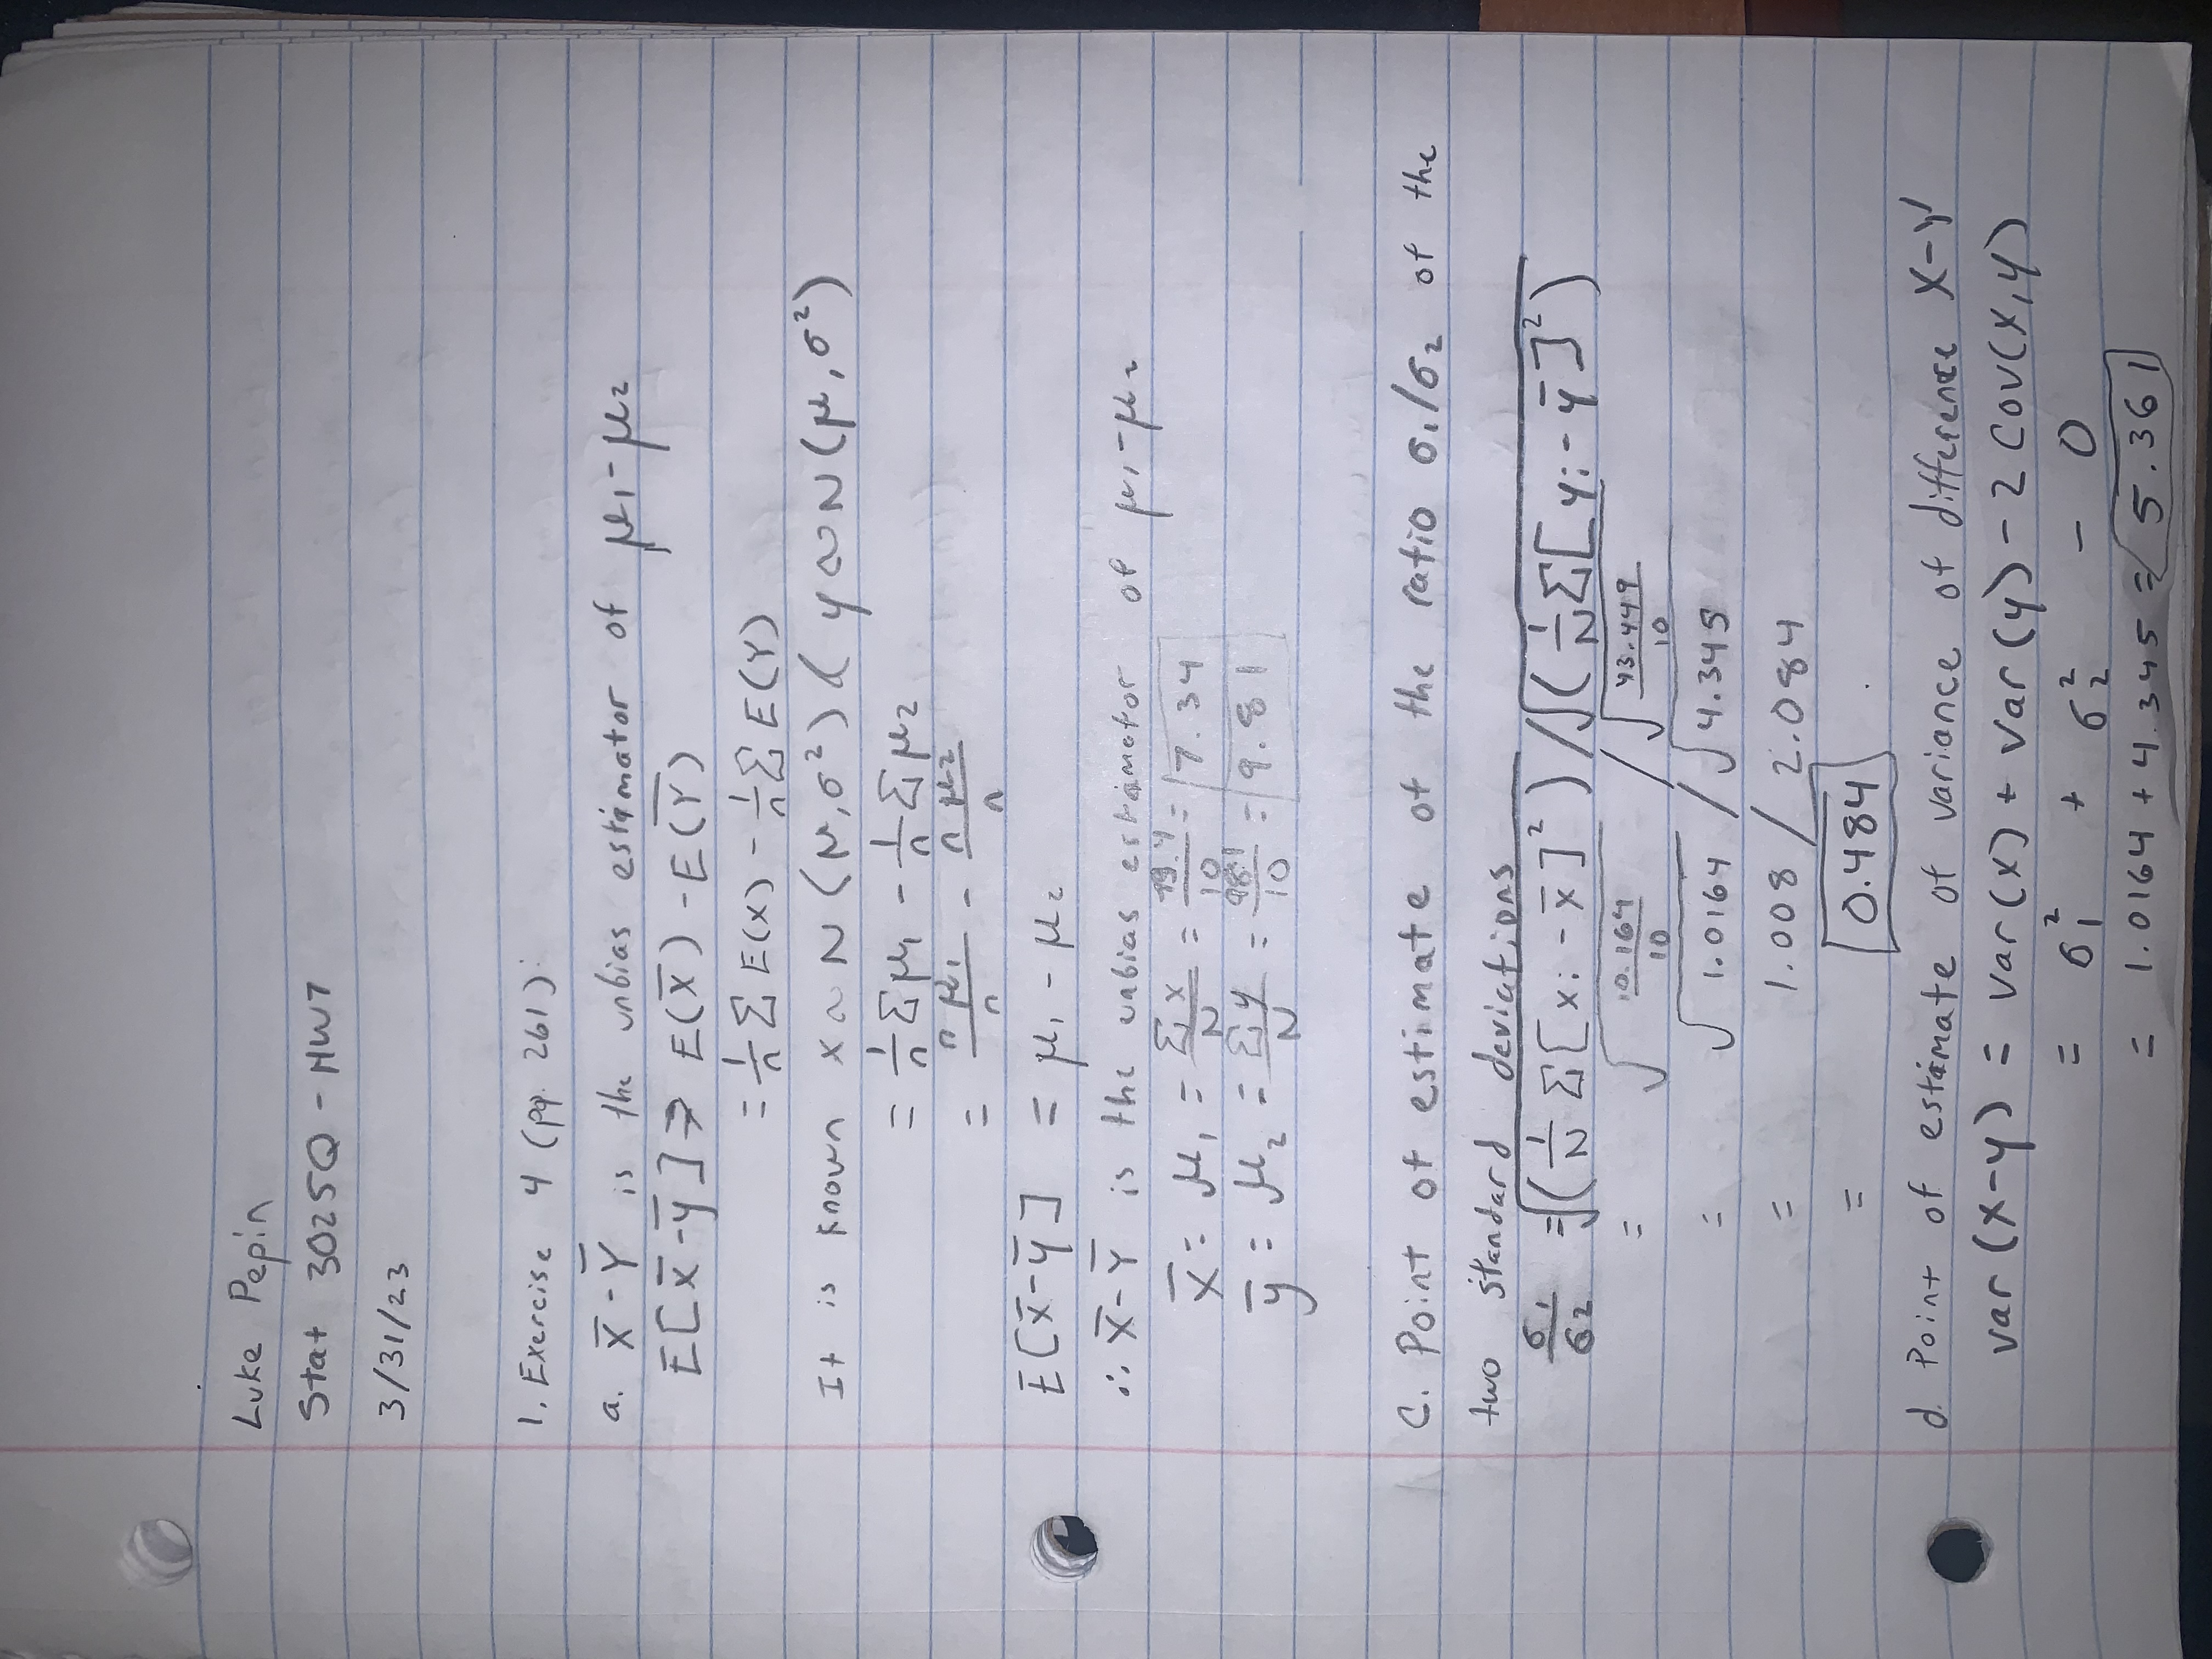 Luke Pepin
Stat 3025Q - HW7
3/31/23
1. Exercise 4 (pg. 261):
a. X̅ - Y̅ is the unbias estimator of μ₁ - μ₂
E[x̅ - y̅] ⇒ E(X̅) - E(Y̅)
= 1/n Σ E(X) - 1/n Σ E(Y)
It is known x ~ N(μ, σ²) & y ~ N(μ, σ²)
= 1/n Σ μ₁ - 1/n Σ μ₂
= nμ₁/n - nμ₂/n
E[x̅ - y̅] = μ₁ - μ₂
∴ X̅ - Y̅ is the unbias estimator of μ₁ - μ₂
x̅ = μ₁ = Σx/N = /10 = 7.34
y̅ = μ₂ = Σy/N = 98.1/10 = 9.81
C. Point of estimate of the ratio σ₁/σ₂ of the
two standard deviations
σ₁/σ₂ = √(1/N Σ[xi - x̅]²) / √(1/N Σ[yi - y̅]²)
= √(10.164/10) / √(43.449/10)
= √1.0164 / √4.345
= 1.008 / 2.084
= 0.484
d. Point of estimate of variance of difference X - Y
var(x-y) = var(x) + var(y) - 2 Cov(x,y)
= σ₁² + σ₂² - 0
= 1.0164 + 4.345 = 5.361